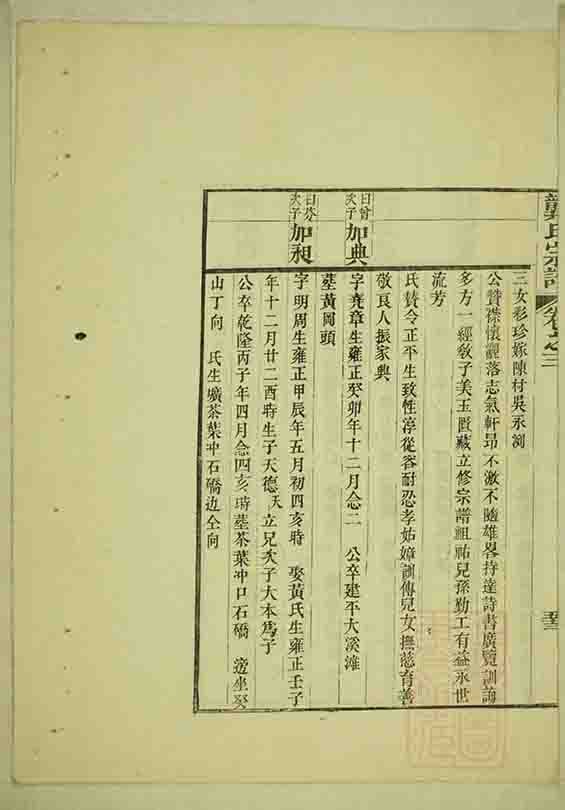 龔氏宗譜 卷之三
三女彩珍嫁陳村吳永浏
公贊襟懷觀落志氣軒昂不激不隨雄畧持達詩書廣覽訓誨
多方一經敎子美玉匱藏立修宗譜祖祐兒孫勤工有益永世
流芳
氏贊令正平生致性淳從容耐忍孝姑嫜訓傳兒女撫慈育善
敬良人振家典
曰曾次子 加典
字尭章生雍正癸卯年十二月念二 公卒建平大溪滩
塟黃岡頭
曰芬次子 加昶
字明周生雍正甲辰年五月初四亥時 娶黃氏生雍正壬子
年十二月廿二酉時生子天德天 立兄次子大本爲子
公卒乾隆丙子年四月念四亥時塟茶葉冲口石礄 邉坐癸
山丁向 氏生壙茶葉冲石礄边仝向